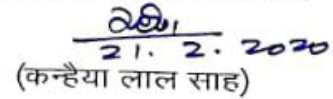 21. 2. 2020
(कन्हैया लाल साह)